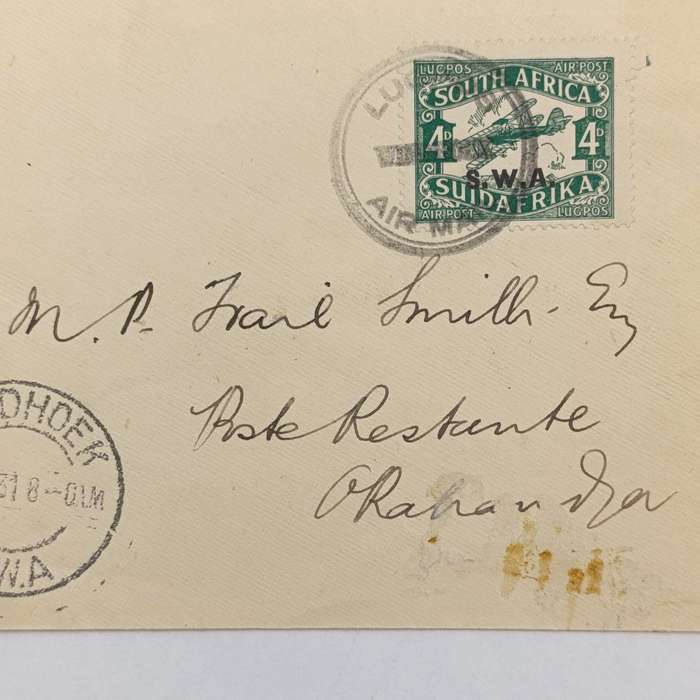 LUGPOS AIR POST
SOUTH AFRICA
4D 4D
S.W.A.
SUIDAFRIKA
AIR POST LUGPOS
AIR MA
M. P. Trail Smith - Esq
Poste Restante
Okahandja
DHOEK
31 8
W.A